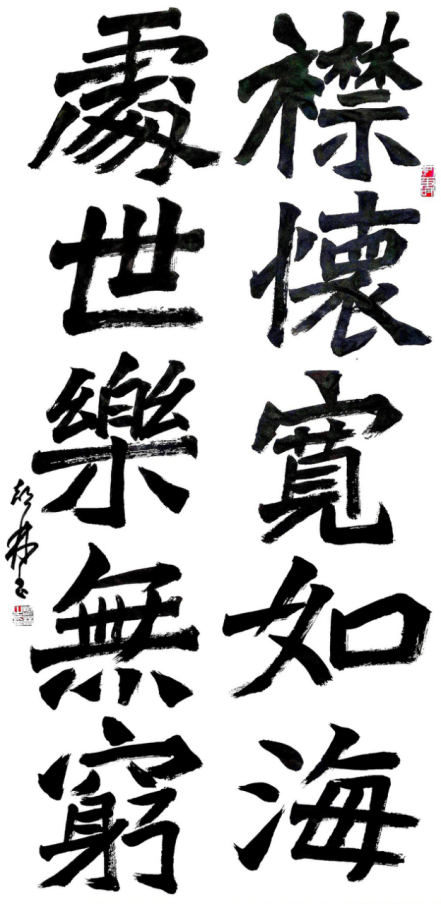 襟懷寬如海
處世樂無窮